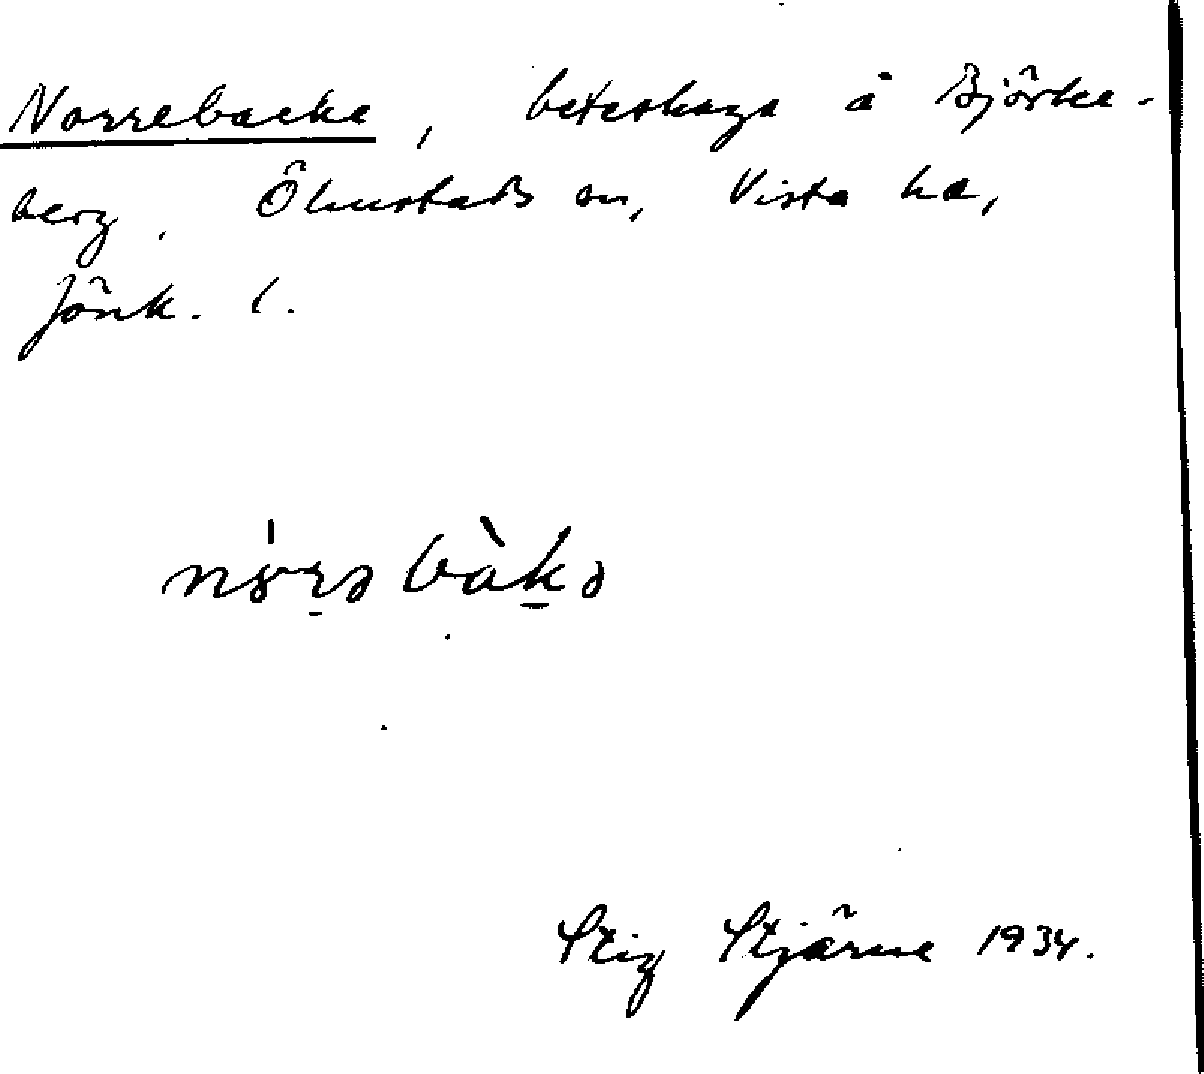 Norrebacke, beteshage å Björke-
berg, Ölmstads sn, Vista hd,
Jönk. l.
Stig Stjärne 1934.